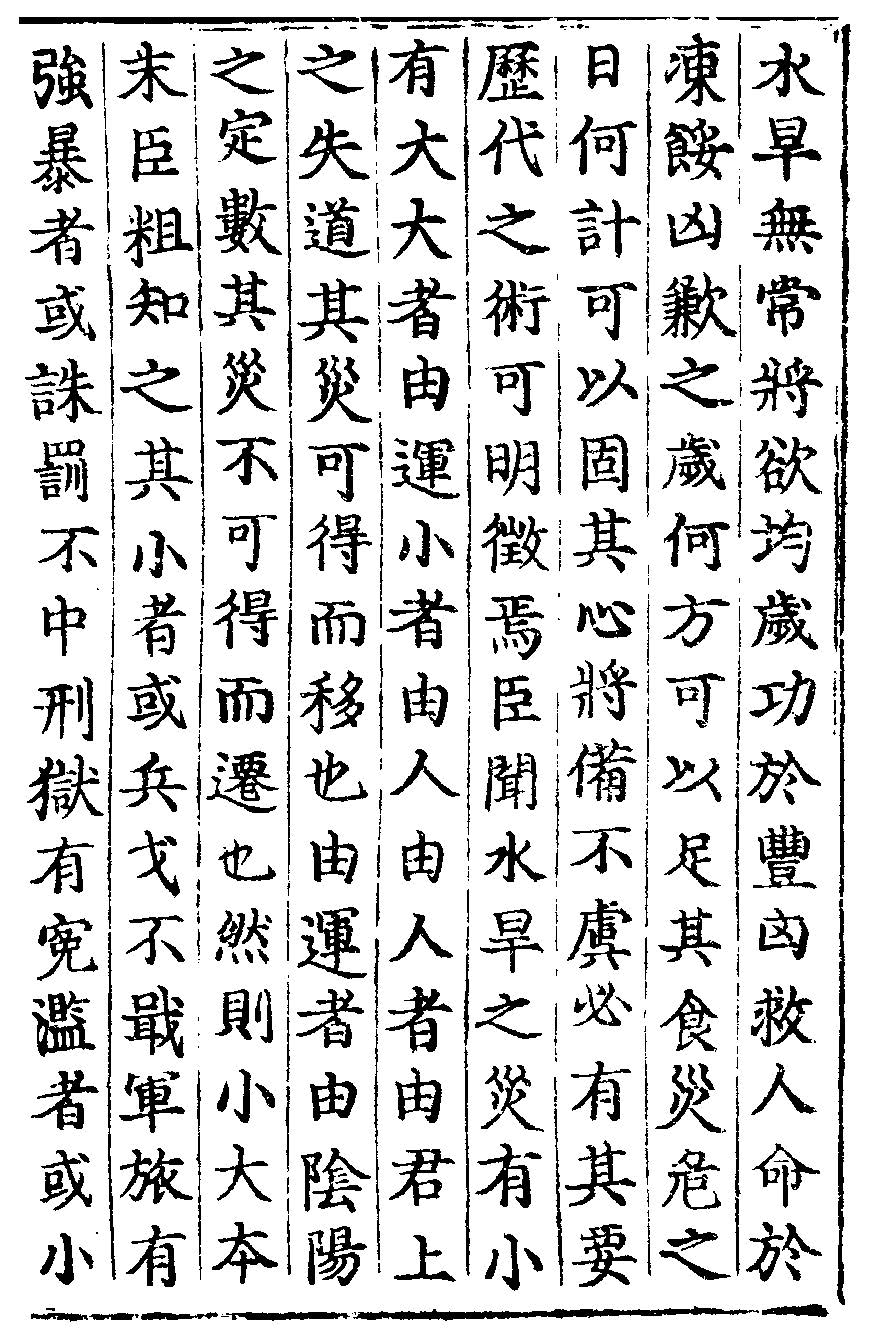 水旱無常將欲均歲功於豐凶救人命於
凍餒凶歉之歲何方可以足其食災危之
日何計可以固其心將備不虞必有其要
歷代之術可明徵焉臣聞水旱之災有小
有大大者由運小者由人由人者由君上
之失道其災可得而移也由運者由陰陽
之定數其災不可得而遷也然則小大本
末臣粗知之其小者或兵戈不戢軍旅有
強暴者或誅罰不中刑獄有寃濫者或小